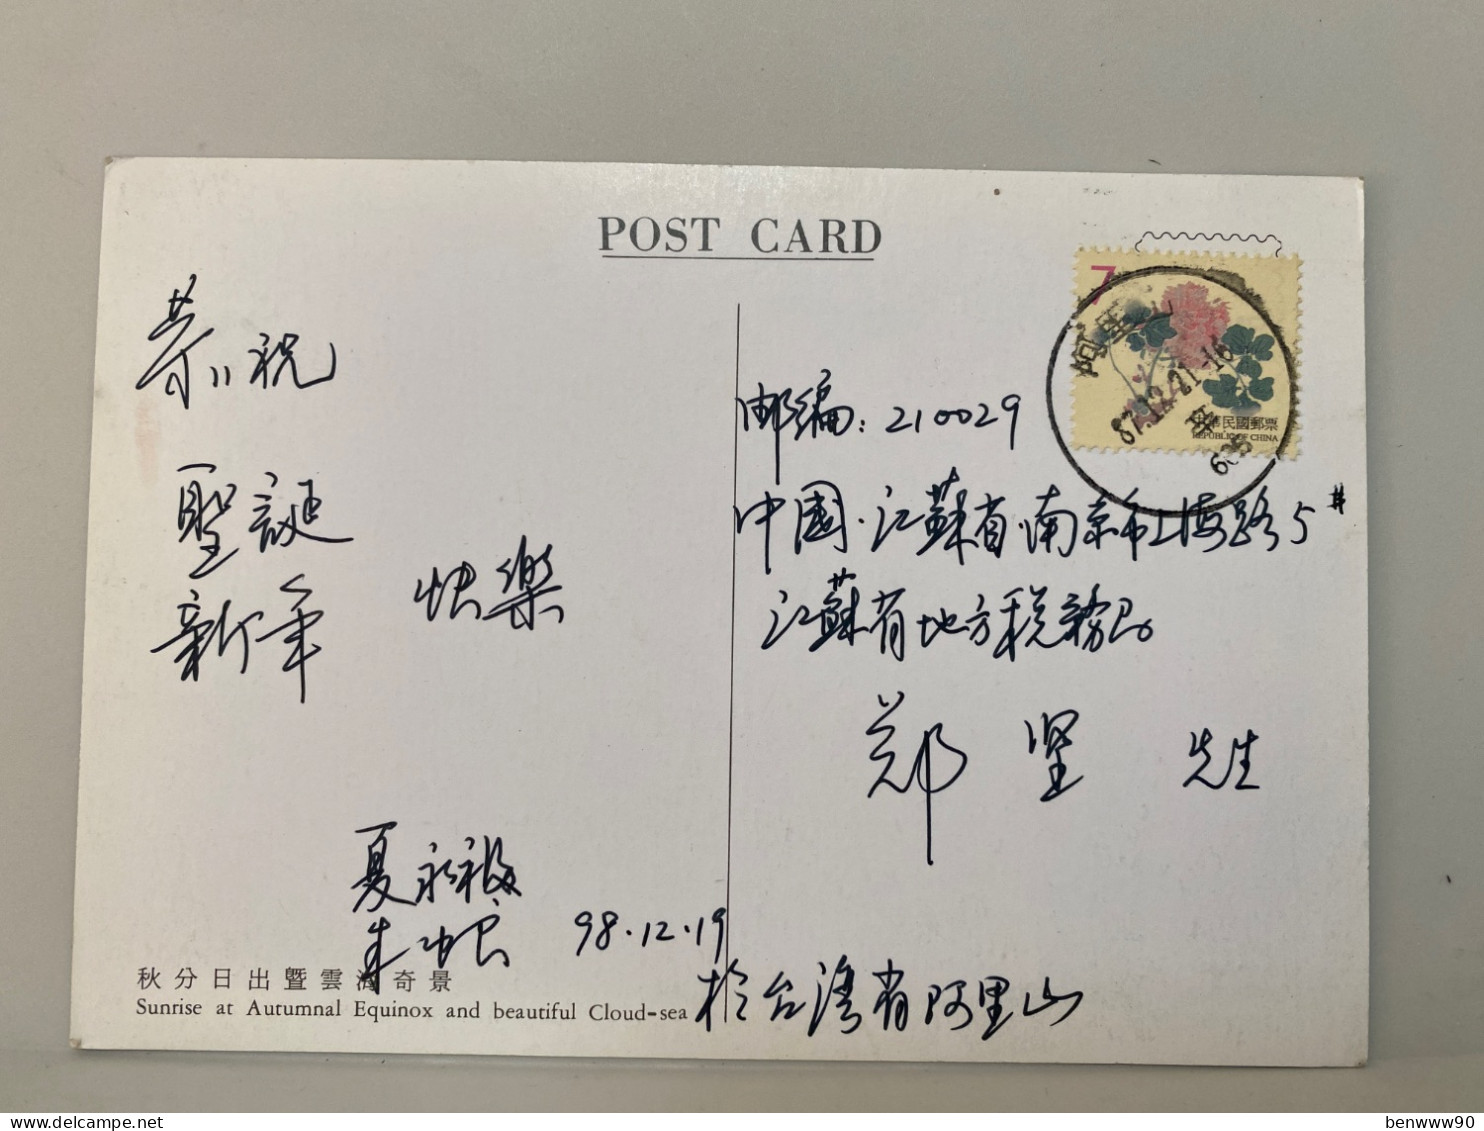 POST CARD
恭祝
聖誕
新年 快樂
夏永福
98.12.19
於台灣省阿里山
邮编：210029
中國·江蘇省·南京市上海路5#
江蘇省地方税務局
郑 坚 先生
7
中華民國郵票
REPUBLIC OF CHINA
阿里山
87.12.21-16
605
秋分日出暨雲海奇景
Sunrise at Autumnal Equinox and beautiful Cloud-sea
benwww90